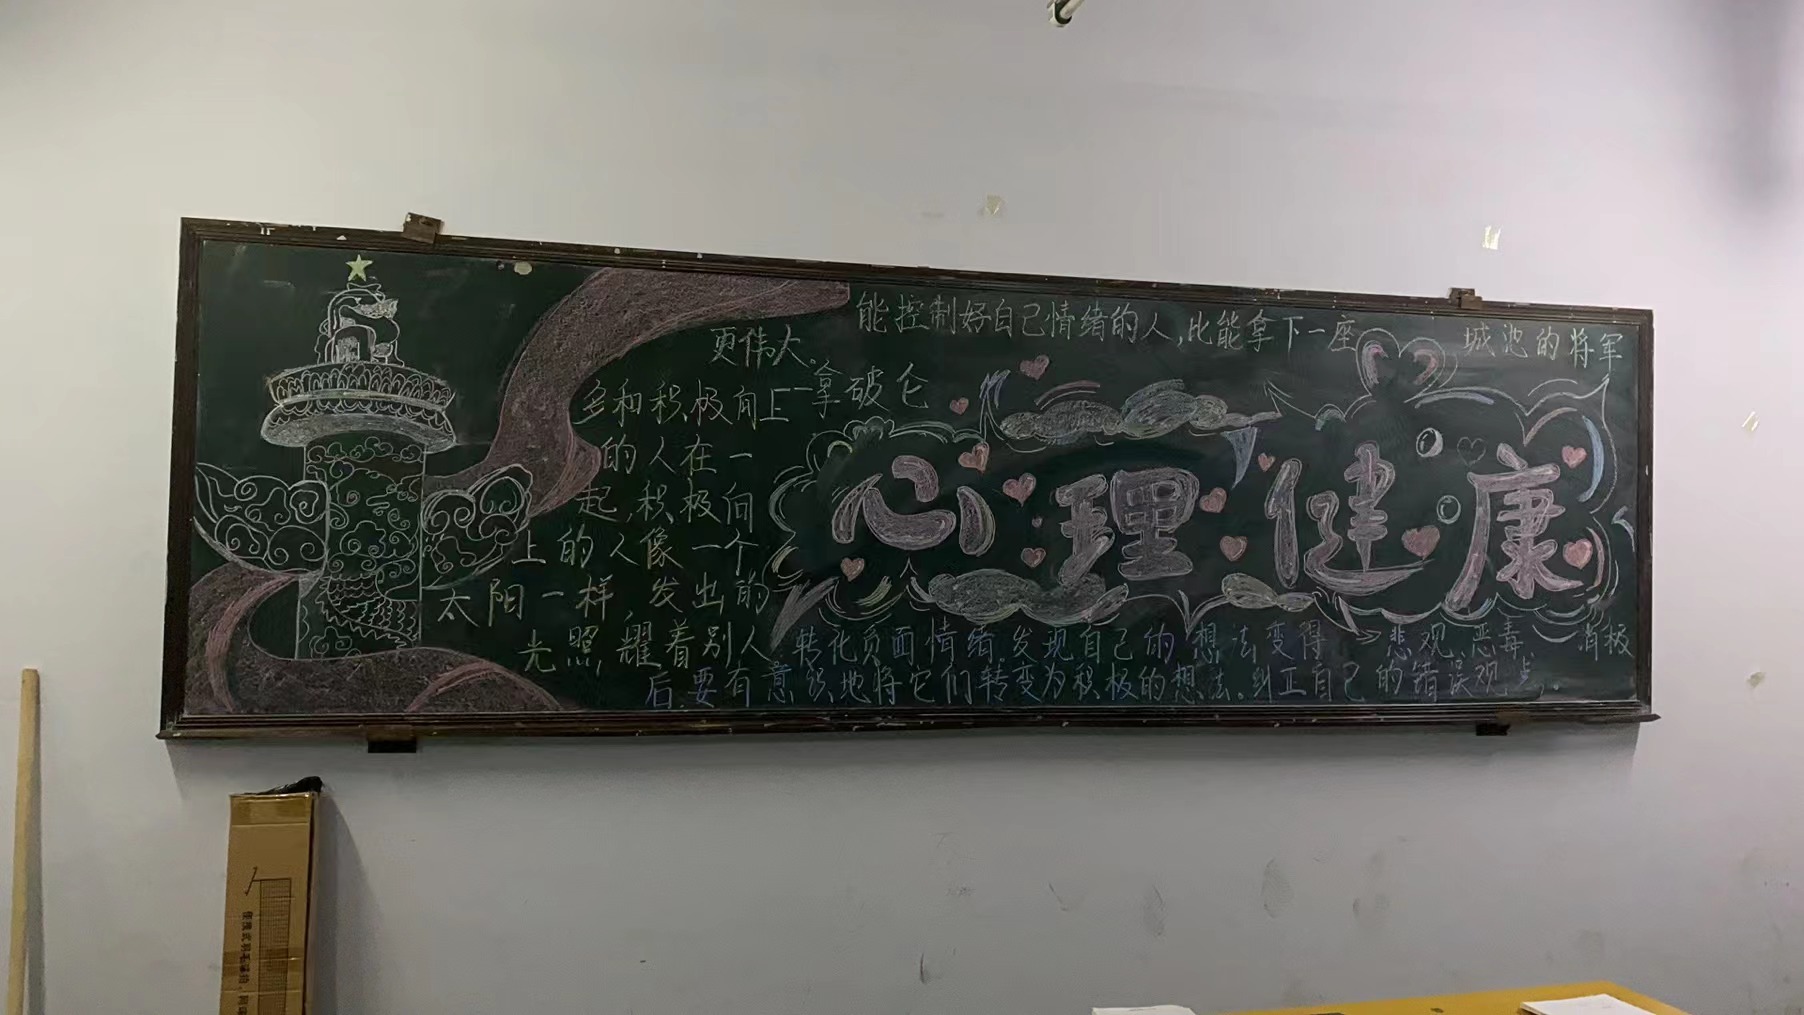 能控制好自己情绪的人,比能拿下一座 城池的将军
更伟大。
一拿破仑
多和积极向上
的人在一
起,积极向
上的人像一个
太阳一样,发出的
光照耀着别人
心理健康
转化负面情绪发现自己的想法变得 悲观、恶毒、消极
后,要有意识地将它们转变为积极的想法。纠正自己的错误观点。